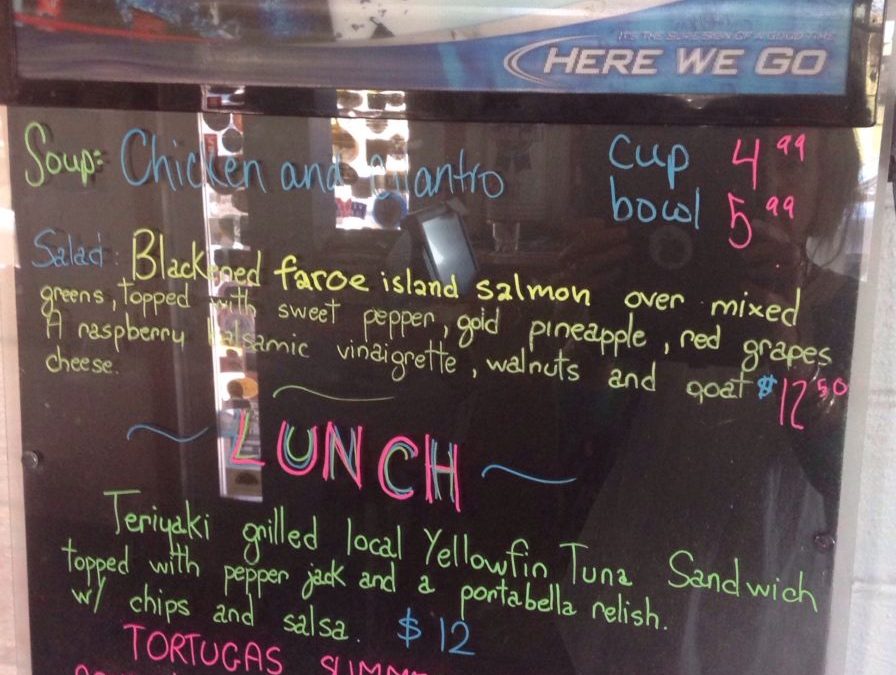 IT'S THE SURE SIGN OF A GOOD TIME
HERE WE GO
Soup: Chicken and Cilantro cup 4.99
bowl 5.99
Salad: Blackened faroe island salmon over mixed
greens, topped with sweet pepper, gold pineapple, red grapes
A raspberry balsamic vinaigrette, walnuts and goat $12.50
cheese.
LUNCH
Teriyaki grilled local Yellowfin Tuna Sandwich
topped with pepper jack and a portabella relish.
w/ chips and salsa. $12
TORTUGAS